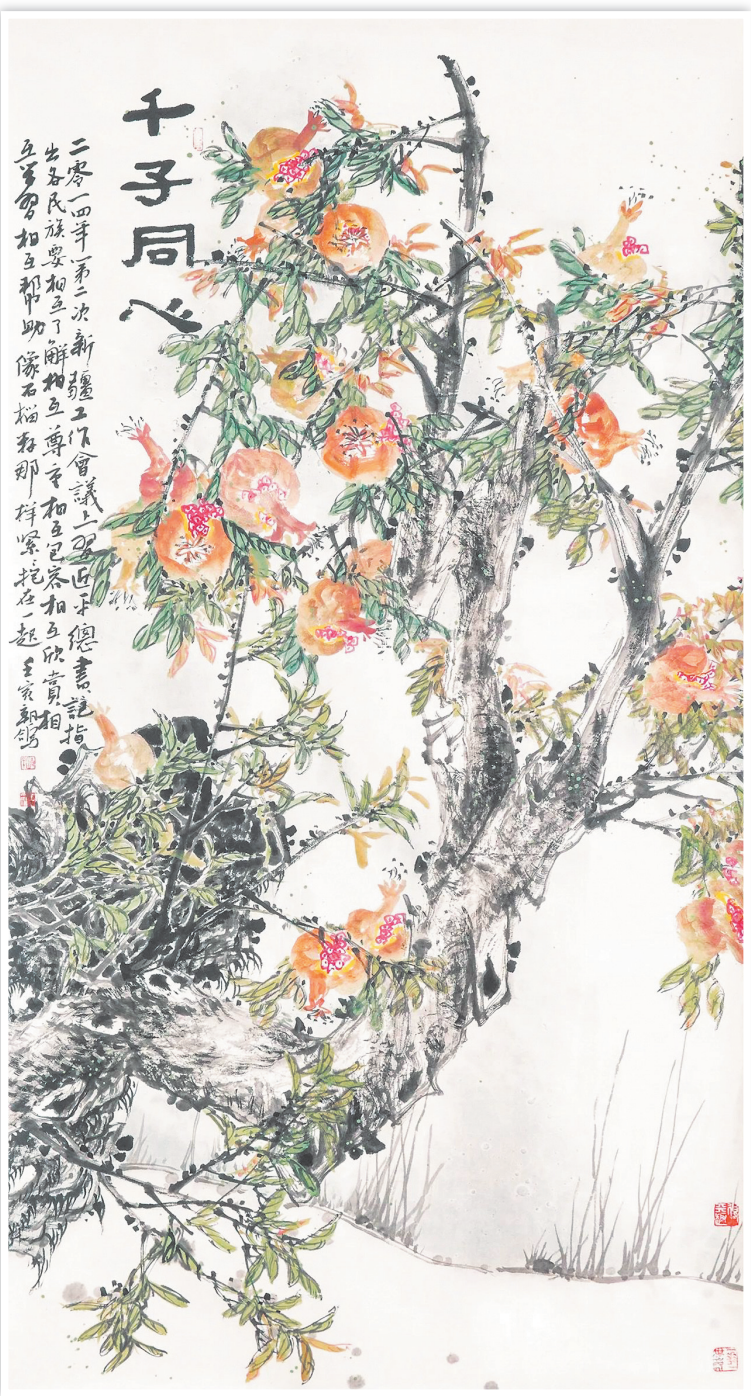 千子同心
二零一四年第二次新疆工作會議上習近平總書記指
出各民族要相互了解相互尊重相互包容相互欣賞相
互學習相互幫助像石榴籽那樣緊抱在一起